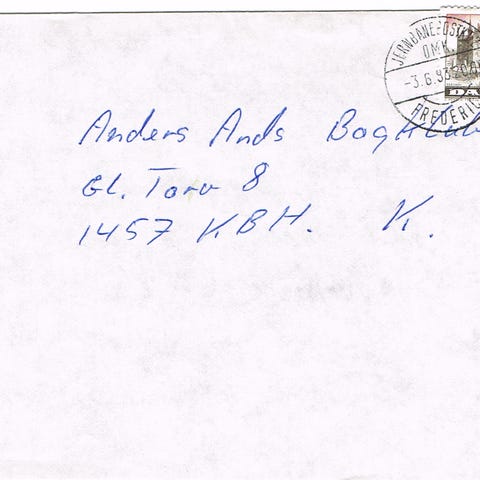 JERNBANEPOSTK
OMK.
-3.6.93
FREDERIC
DA
Anders Ands Bogklub
Gl. Torv 8
1457 KBH. K.